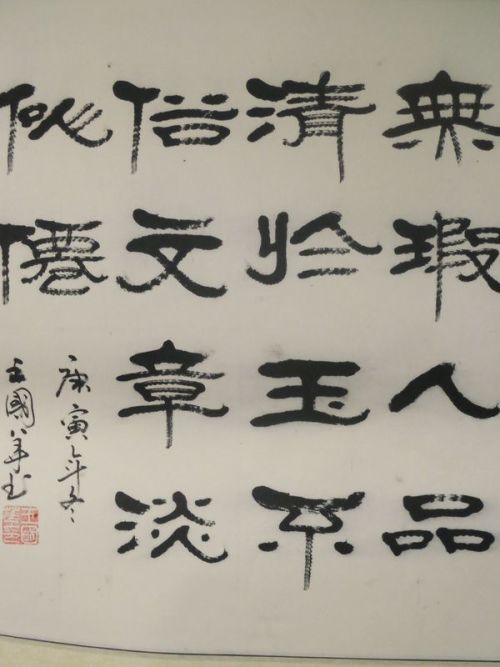 無瑕人品
清於玉不
俗文章淡
似僊
庚寅年冬
王國 书